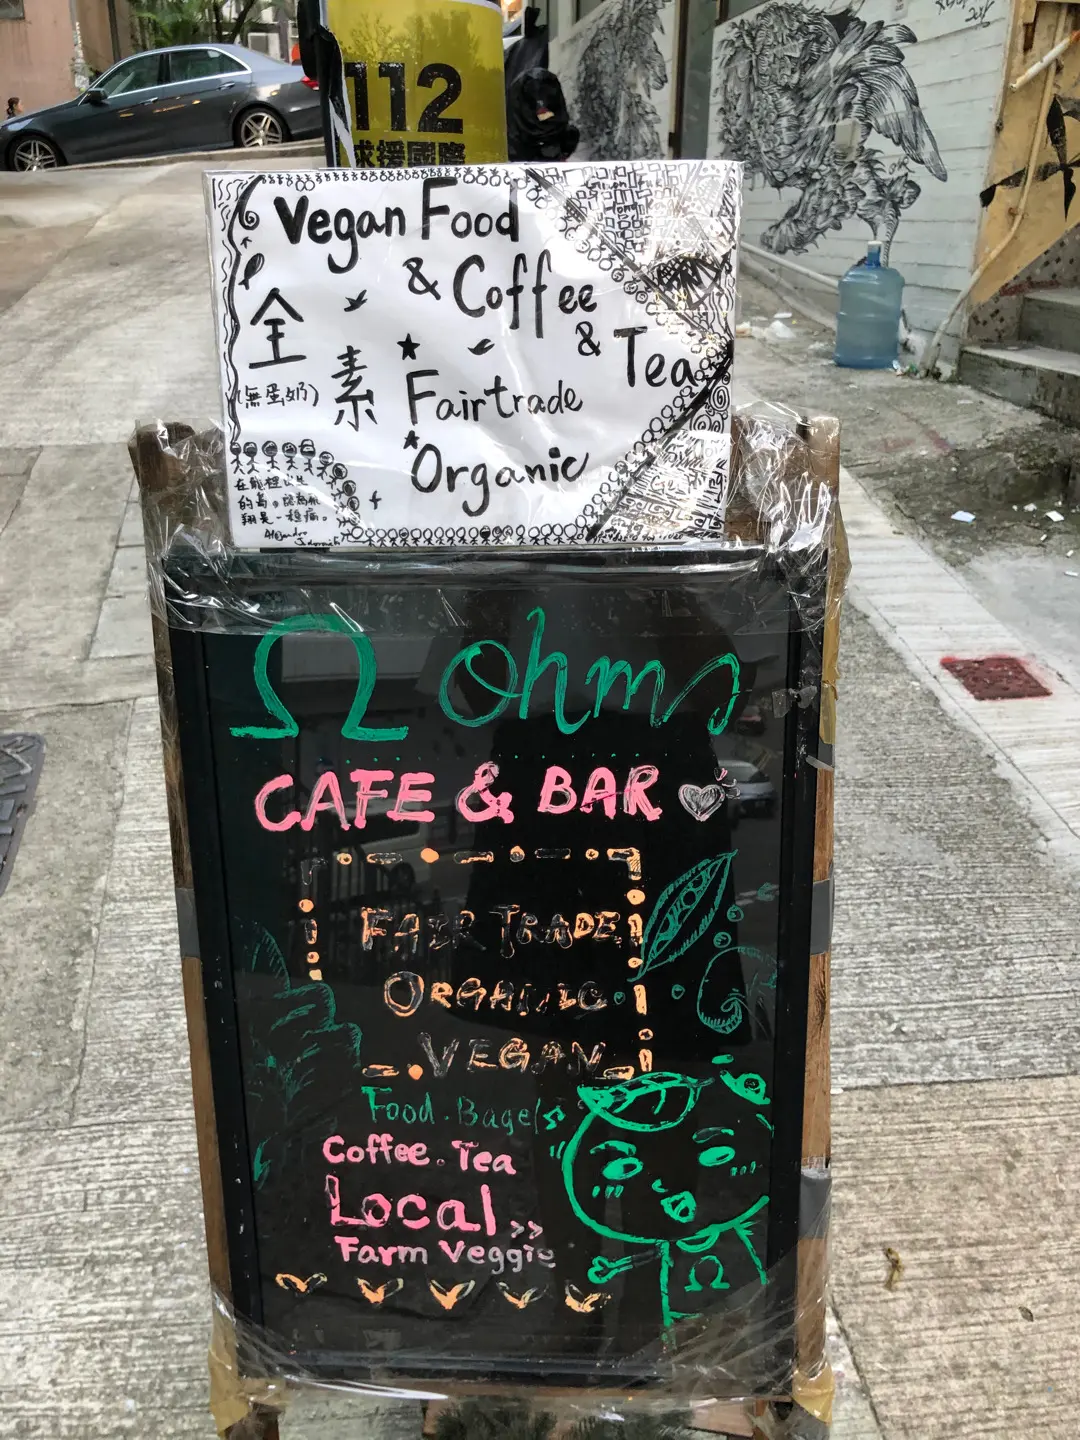 112
求援國際
Vegan Food
& Coffee
& Tea
全
素
(無蛋奶)
★ Fairtrade
★ Organic
在籠裡出生
的鳥。認為飛
翔是一種病。
Alejandro
Ω ohms
CAFE & BAR
FAIR TRADE
ORGANIC
VEGAN
Food. Bagels
Coffee. Tea
Local >>
Farm Veggie
Ω